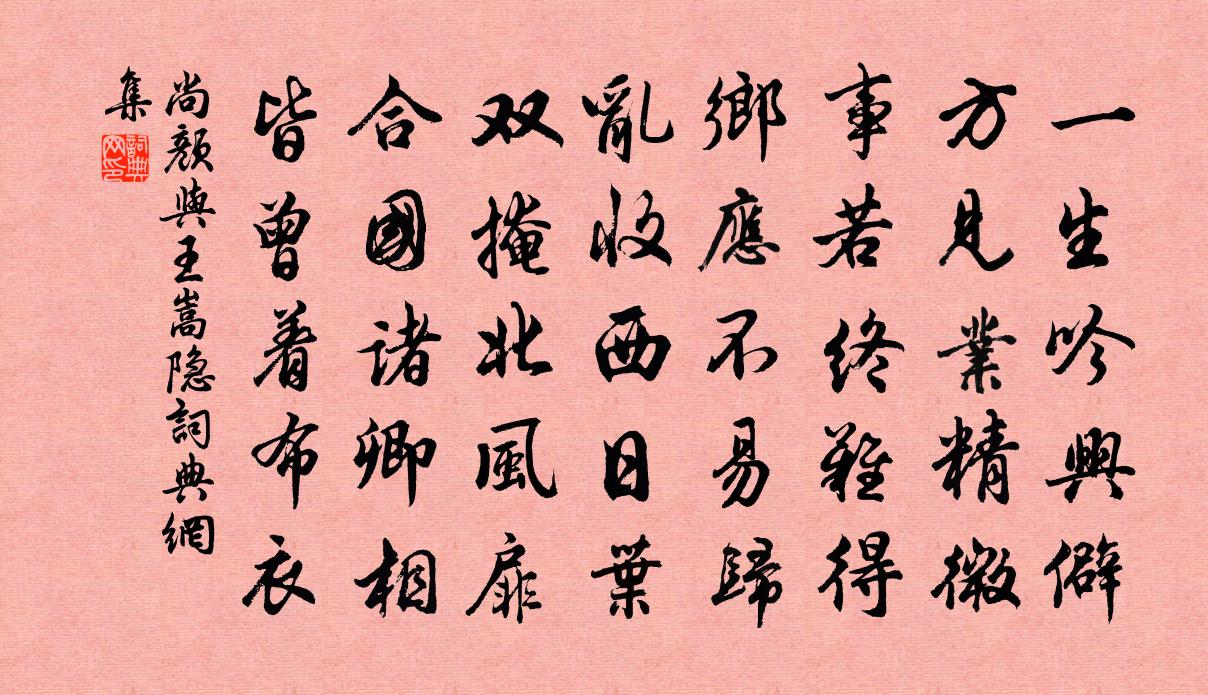 一生吟興僻
方見業精微
事若終難得
鄉應不易歸
亂收西日葉
双掩北風扉
合國諸卿相
皆曾着布衣
尚顏與王嵩隐詞典網
集
詞典
网印